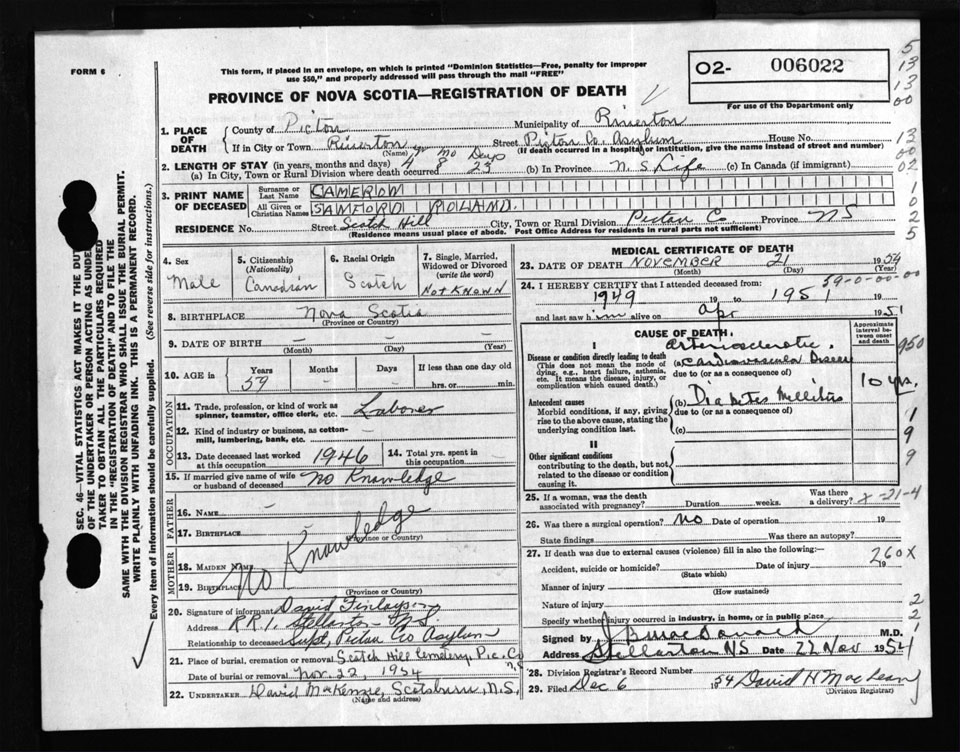 FORM 6
This form, if placed in an envelope, on which is printed "Dominion Statistics—Free, penalty for improper
use $50," and properly addressed will pass through the mail "FREE"
O2- 006022
For use of the Department only
PROVINCE OF NOVA SCOTIA—REGISTRATION OF DEATH
5
13
13
00
13
00
02
1
0
2
5
1. PLACE OF DEATH
County of Pictou Municipality of Riverton
If in City or Town Riverton Street Pictou Co. Asylum House No.
(Name) (If death occurred in a hospital or institution, give the name instead of street and number)
2. LENGTH OF STAY (in years, months and days)
yr mo Days
(a) In City, Town or Rural Division where death occurred 4 8 23 (b) In Province N.S Life (c) In Canada (if immigrant)
3. PRINT NAME OF DECEASED
Surname or Last Name CAMERON
All Given or Christian Names SAMFORD ROLAND.
RESIDENCE No. Street Scotch Hill City, Town or Rural Division Pictou C. Province NS
(Residence means usual place of abode. Post Office Address for residents in rural parts not sufficient)
SEC. 46—VITAL STATISTICS ACT MAKES IT THE DUT
OF THE UNDERTAKER OR PERSON ACTING AS UNDE
TAKER TO OBTAIN ALL THE PARTICULARS REQUIRED
IN THE "REGISTRATION OF DEATH" AND TO FILE THE
SAME WITH THE DIVISION REGISTRAR WHO SHALL ISSUE THE BURIAL PERMIT.
WRITE PLAINLY WITH UNFADING INK. THIS IS A PERMANENT RECORD.
Every item of information should be carefully supplied. (See reverse side for instructions.)
4. Sex
Male
5. Citizenship
(Nationality)
Canadian
6. Racial Origin
Scotch
7. Single, Married,
Widowed or Divorced
(write the word)
Not Known
8. BIRTHPLACE Nova Scotia
(Province or Country)
9. DATE OF BIRTH — — —
(Month) (Day) (Year)
10. AGE in
Years Months Days If less than one day old
59 — — hrs. or min.
OCCUPATION
11. Trade, profession, or kind of work as
spinner, teamster, office clerk, etc. Laborer
12. Kind of industry or business, as cotton-
mill, lumbering, bank, etc. —
13. Date deceased last worked
at this occupation 1946
14. Total yrs. spent in
this occupation —
15. If married give name of wife
or husband of deceased No Knowledge
FATHER
16. Name —
17. Birthplace —
(Province or Country)
MOTHER
18. Maiden Name
19. Birthplace
(Province or Country)
No Knowledge
20. Signature of informant David Finlayson
Address R R 1, Stellarton N.S.
Relationship to deceased Supt, Pictou Co Asylum
21. Place of burial, cremation or removal Scotch Hill Cemetery, Pic. Co
N.S
Date of burial or removal Nov. 22, 1954
22. Undertaker David MacKenzie, Scotsburn, N.S,
(Name and address)
MEDICAL CERTIFICATE OF DEATH
23. DATE OF DEATH November 21 1954
(Month) (Day) (Year)
59-0-00-00
24. I HEREBY CERTIFY that I attended deceased from:
1949 19 to 1951 19
and last saw him alive on Apr 1951
CAUSE OF DEATH.
Approximate
interval between
onset and death
I
Disease or condition directly leading to death
(This does not mean the mode of
dying, e.g., heart failure, asthenia,
etc. It means the disease, injury, or
complication which caused death.)
Arteriosclerotic
(a) Cardiovascular Disease
due to (or as a consequence of)
Antecedent causes
Morbid conditions, if any, giving
rise to the above cause, stating the
underlying condition last.
(b) Diabetes Mellitus 10 yrs.
due to (or as a consequence of)
(c)
II
Other significant conditions
contributing to the death, but not
related to the disease or condition
causing it.
950
1
9
9
25. If a woman, was the death
associated with pregnancy? Duration weeks. Was there
a delivery? x-21-4
26. Was there a surgical operation? No Date of operation 19
State findings Was there an autopsy?
27. If death was due to external causes (violence) fill in also the following:—
260X
Accident, suicide or homicide? Date of injury 19
(State which)
Manner of injury
(How sustained)
Nature of injury
2
Specify whether injury occurred in industry, in home, or in public place
2
Signed by J B MacDonald M.D.
1
Address Stellarton NS Date 22 Nov 1954
28. Division Registrar's Record Number
29. Filed Dec 6 1954 David H MacLean
(Division Registrar)